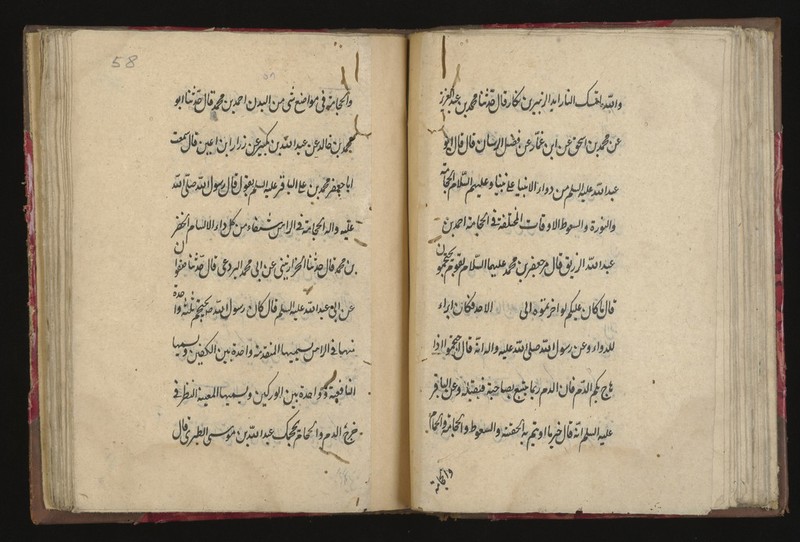 والله يمسك النار ابدا الزبير بن بكار قال حدثنا محمد بن عبد العزيز
عن محمد بن اسحق عن ابن عمار عن فضل الرسان قال قال ابو
عبد الله عليه السلم من دواء الانبيا على نبينا وعليهم السلام الحجامة
والنورة والسعوط الاوقات المختلفة في الحجامة احمد بن
عبد الله الازرق قال مر جعفر بن محمد عليهما السلام بقوم يحتجمون
قال ما كان عليكم لو اخرتموه الى الاحد فكان ابراء
للداء وعن رسول الله صلى الله عليه واله انه قال احتجموا اذا
هاج بكم الدم فان الدم ربما تبيغ بصاحبه فيقتله وعن الباقر
عليه السلم انه قال خير ما تداويتم به الحقنة والسعوط والحجامة والحمام
والحجامة
58
والحجامة في مواضع شتى من البدن احمد بن محمد قال حدثنا ابو
محمد بن خالد عن عبد الله بن بكير عن زرارة بن اعين قال سمعت
ابا جعفر محمد بن على الباقر عليه السلم يقول قال رسول الله صلى الله
عليه واله الحجامة في الراس شفاء من كل داء الا السام الخضر
بن محمد قال حدثنا الخرازيني عن ابى محمد البردعى قال حدثنا صفوان
عن ابى عبد الله عليه السلم قال كان رسول الله ص يحتجم ثلثة واحدة
منها في الراس يسميها المتقدمة واحدة بين الكتفين ويسميها
النافعة وواحدة بين الوركين ويسميها المعينة النظر في
خروج الدم والحجامة عبد الله بن موسى الطبرى قال